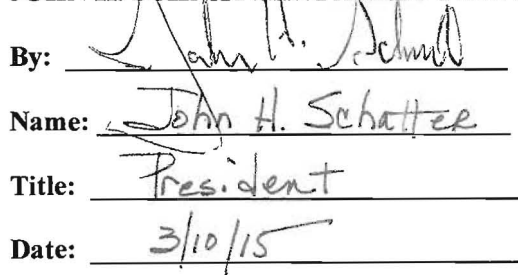 By: John H. Schnatter
Name: John H. Schatter
Title: President
Date: 3/10/15